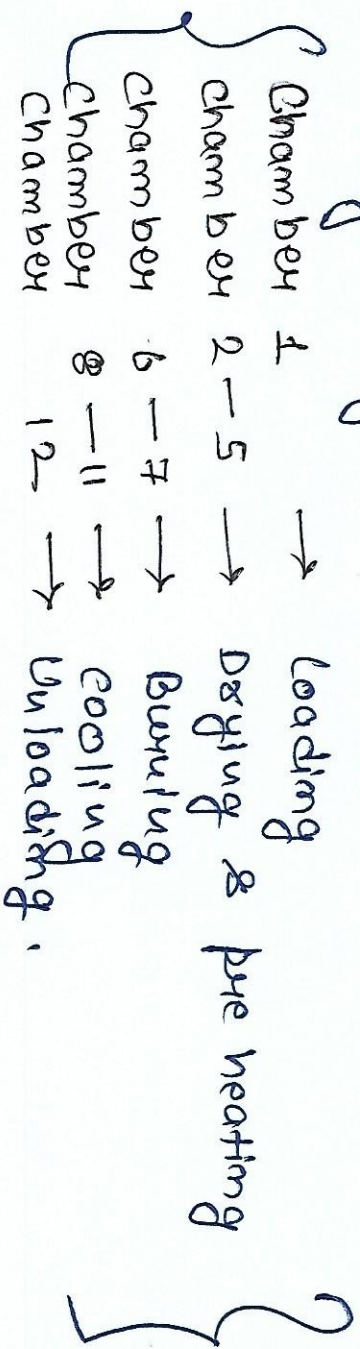 Chamber 1 → Loading
Chamber 2 – 5 → Drying & pre heating
Chamber 6 – 7 → Burning
Chamber 8 – 11 → Cooling
Chamber 12 → Unloading.